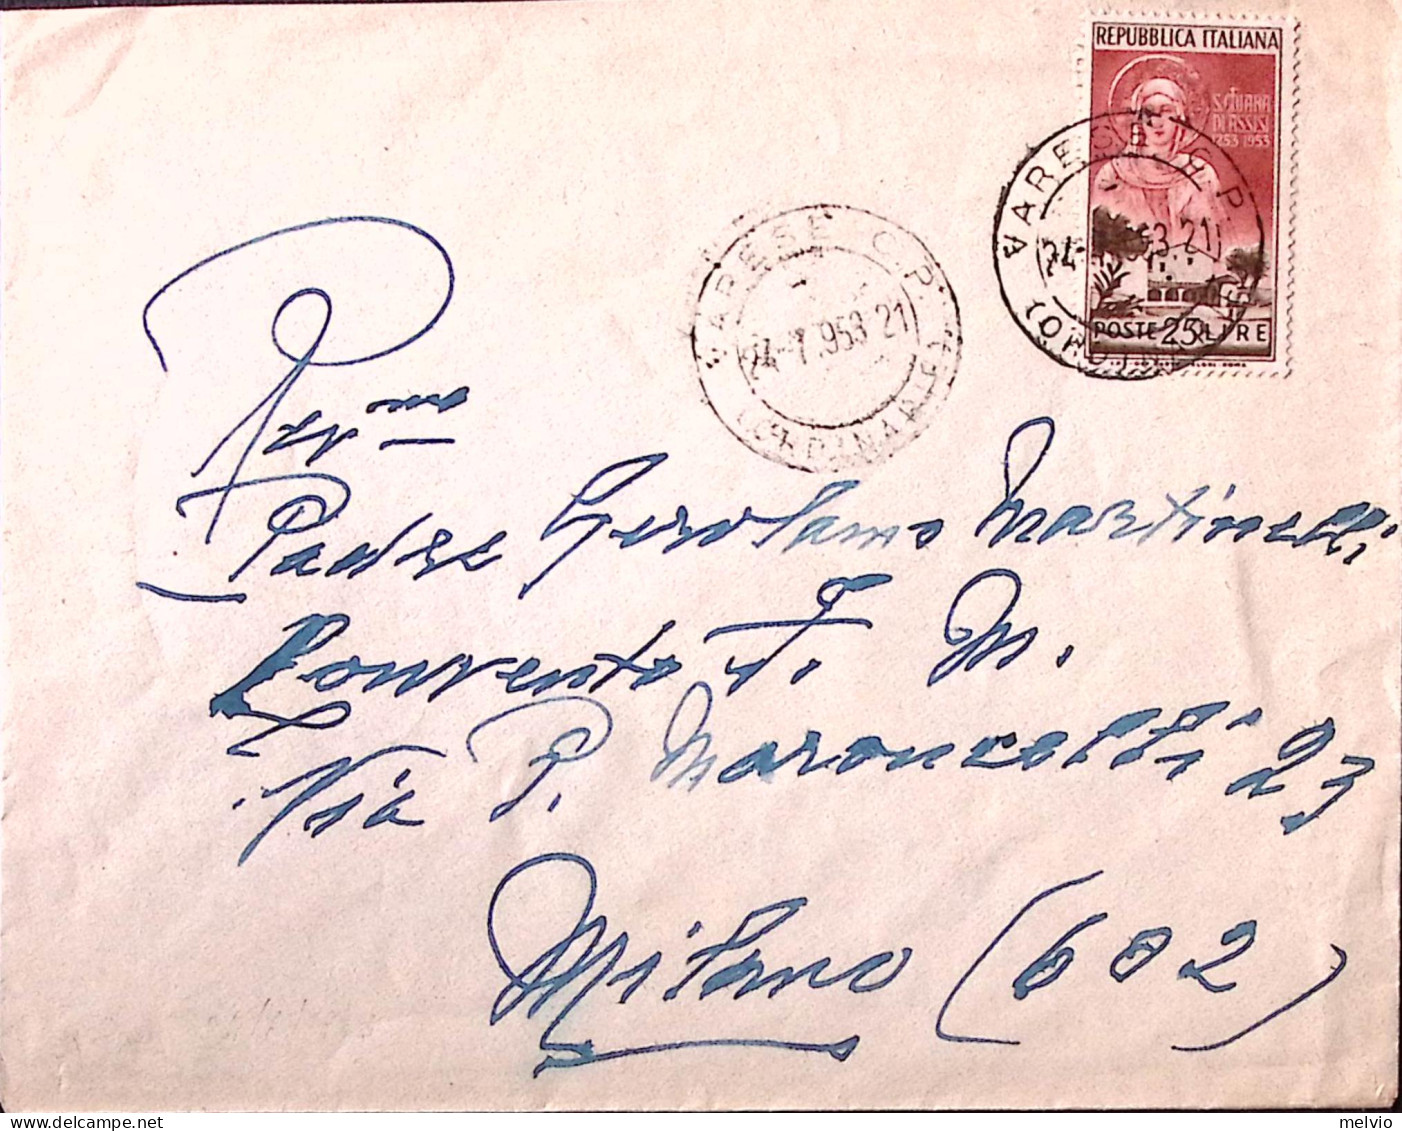 REPUBBLICA ITALIANA
S. CHIARA
DI ASSISI
1253 1953
POSTE 25 LIRE
VARESE C.P.
24-7.953 21
(ORDINARIE)
VARESE C.P.
24-7.953 21
(ORDINARIE)
Rev.mo
Padre Gerolamo Martinelli
Convento F. M.
Via P. Maroncelli 23
Milano (602)
melvio